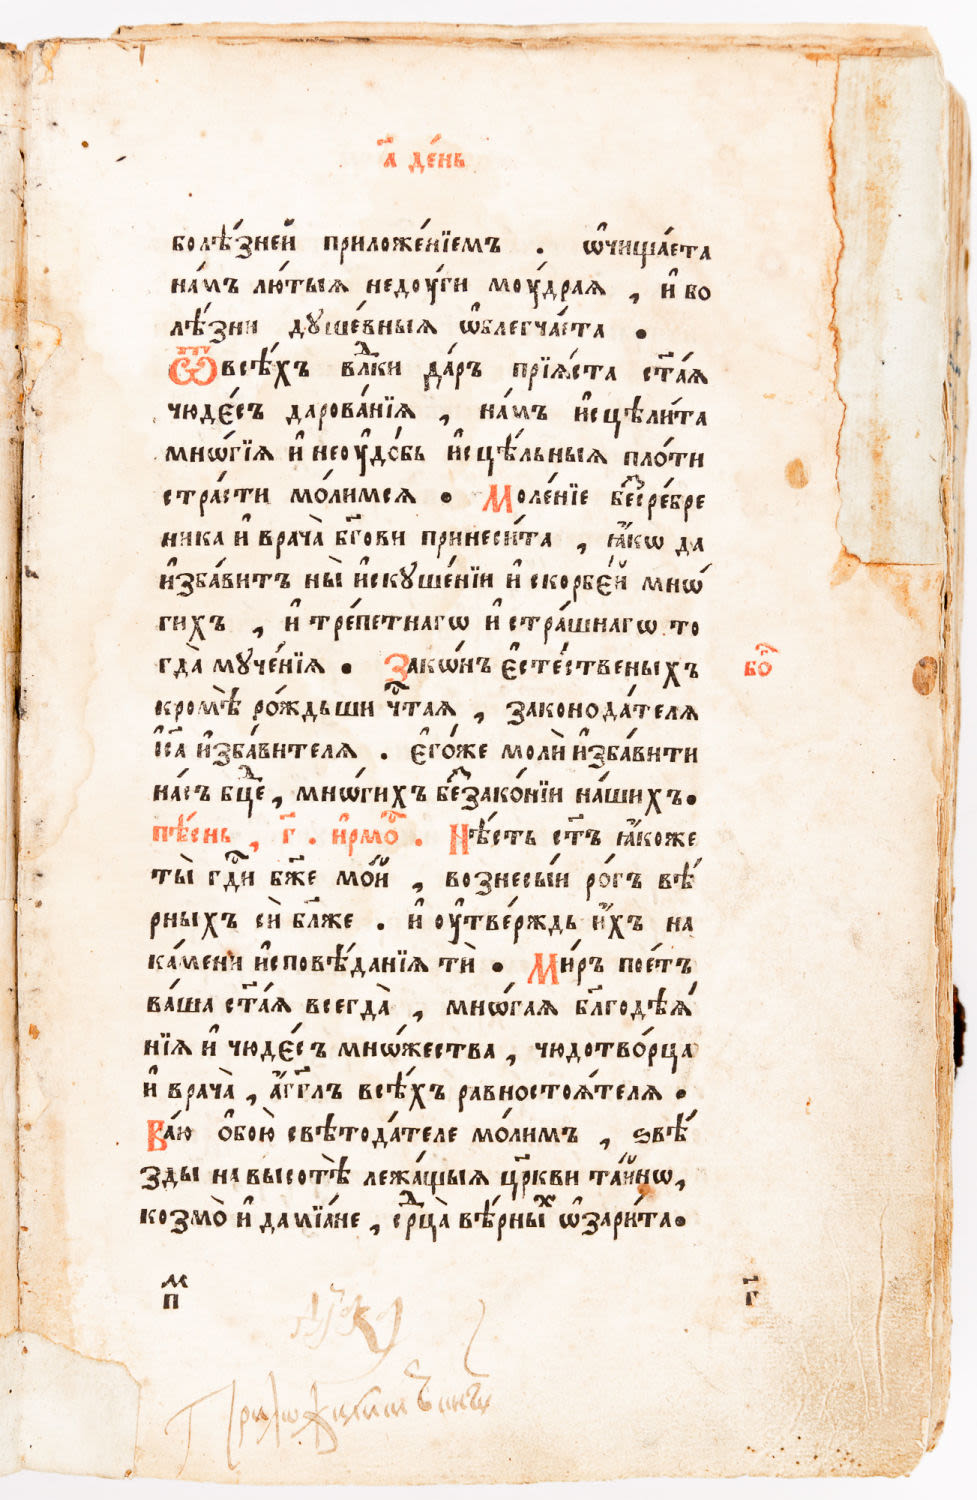 а҃ де́нь
болѣ́зней приложе́нїемъ . ѡ҆чища́ета
на́мъ лю́тыѧ недоу́ги моу́драѧ , и҆ бо
лѣ́зни душе́вныѧ ѡ҆блегча́ета .
Ѿ всѣ́хъ влⷣки да́ръ прїѧ́ста ст҃а́ѧ
чюде́съ дарова́нїѧ , на́мъ и҆сцѣли́та
мнѡ́гїѧ и҆ неоу҆до́бь и҆сцѣ́льныѧ пло́ти
стра́сти мо́лимсѧ . Моле́нїе бесре́бре
ника и҆ врача̀ бг҃ови принеси́та , ꙗ҆́кѡ да
и҆зба́витъ ны̀ и҆скуше́нїи и҆ скорбе́й мнѡ́
гихъ , и҆ тре́петнагѡ и҆ стра́шнагѡ то
гда̀ муче́нїѧ . Закѡ́нъ є҆сте́ственыхъ
бо҃
кромѣ̀ ро́ждьши чт҃аѧ , законода́телѧ
і҆с҃а и҆зба́вителѧ . є҆го́же молѝ и҆зба́вити
на́съ бцⷣе , мнѡ́гихъ беззако́нїи на́шихъ.
пѣ́снь , г҃ . і҆рмо́с . Нѣ́сть ст҃ъ ꙗ҆́коже
ты̀ гдⷭ҇и бж҃е мо́й , вознесы́и ро́гъ вѣ́
рныхъ сѝ бл҃же . и҆ оу҆тве́рждь и҆́хъ на
ка́мени и҆сповѣ́данїѧ тѝ . Ми́ръ пое́тъ
ва́ша ст҃а́ѧ всегда̀ , мнѡ́гаѧ бл҃годѣѧ́
нїѧ и҆ чюде́съ мнѡ́жества , чюдотво́рца
и҆ врача̀ , а҆́гг҃лъ всѣ́хъ равностоѧ́телѧ .
Ва́ю ѻ҆бою̀ свѣтода́теле мо́лимъ , ѕвѣ́
зды на высотѣ̀ лежа́щыѧ цр҃кви та́йнѡ,
козмо̀ и҆ дамїа́не , срⷣца̀ вѣ́рныⷯ ѡ҆зари́та.
мп г҃